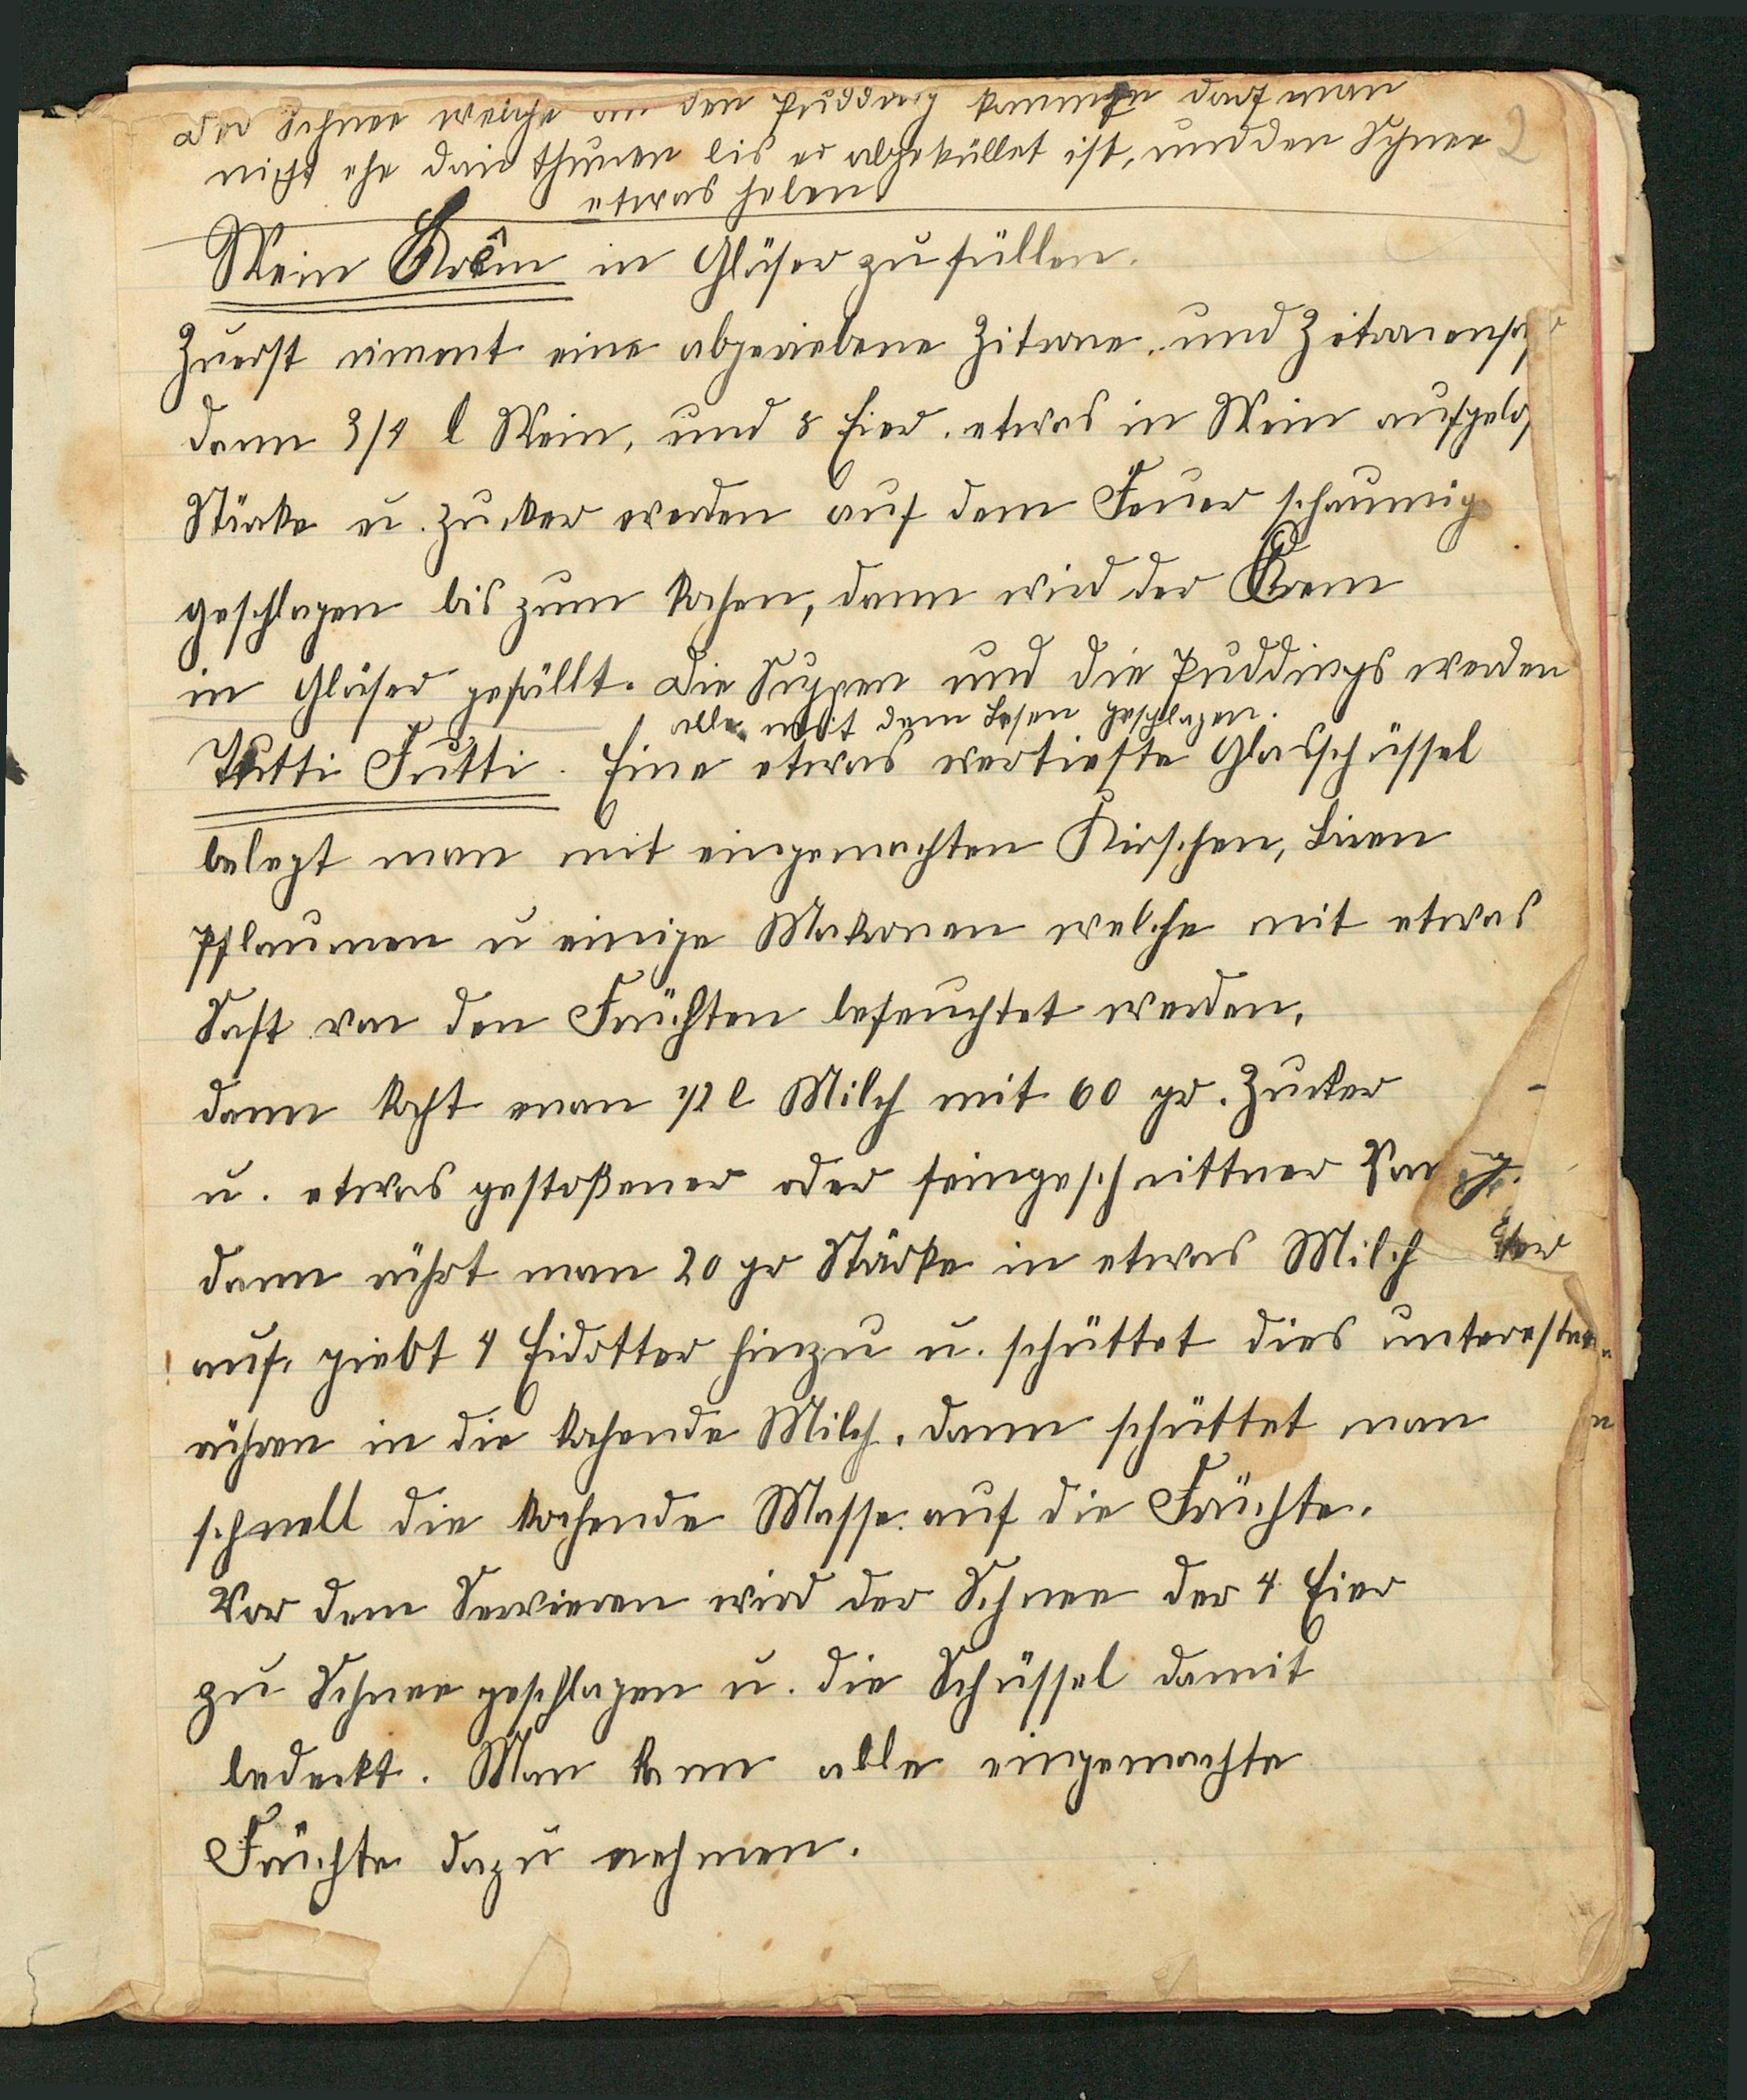 der Schnee welche an den Pudding kommen darf man
nicht ehe drin thunen bis er abgeküllet ist, und den Schnee
2
etwas heben
Wein Krêm in Gläser zu füllen.
Zuerst niment eine abgeriebene Zitrone, und
dann 3/4 l Wein, und 8 Eier. etwas in Wein
Stärke u. Zucker werden auf dem Feuer schaumig
geschlagen bis zum kochen, dann wird der Krem
in Gläser gefüllt. die Suppen und die Puddings werden
alle mit dem Besen geschlagen.
Tutti Futti. Eine etwas vertiefte Glasschüssel
belegt man mit eingemachten Kirschen, Biren
Pflaumen u einige Makronen welche mit etwas
Saft von den Früchten befeuchtet werden.
dann kocht man 1/2 l Milch mit 60 gr. Zucker
u. etwas gestoßener oder feingeschnittner
dann rührt man 20 gr Stärke in etwas Milch
auf. giebt 4 Eidotter hinzu u. schüttet dies
rühren in die kochende Milch. dann schüttet man
schnell die kochende Masse auf die Früchte.
Vor dem Servieren wird der Schnee der 4 Eier
zu Schnee geschlagen u. die Schüssel damit
bedeckt. Man kann alle eingemachte
Früchte dazu nehmen.